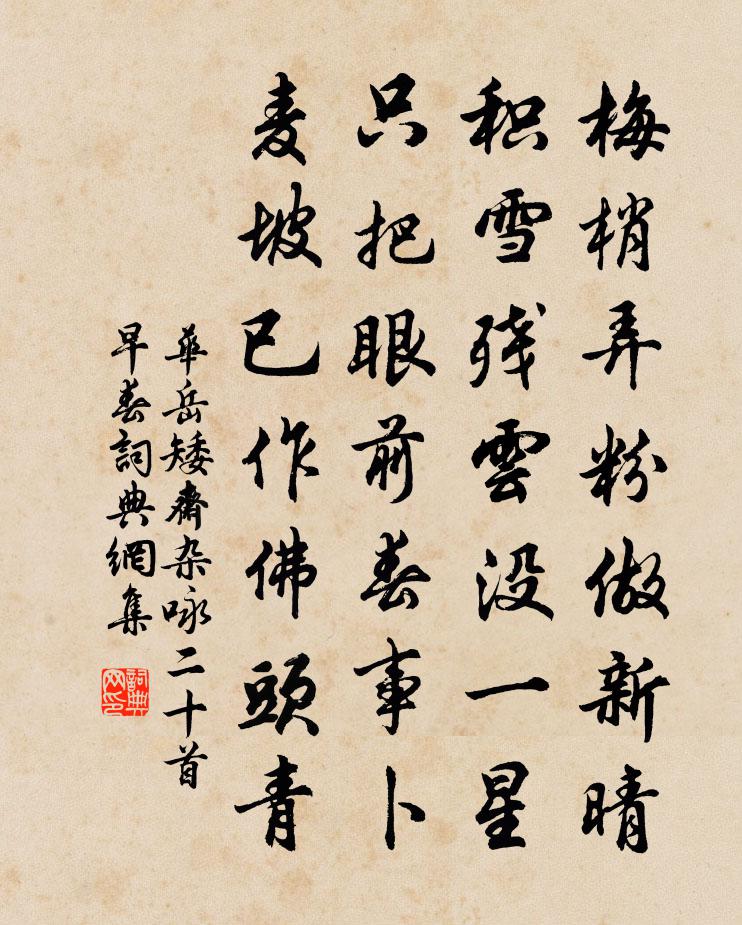 梅梢弄粉做新晴
积雪残雲没一星
只把眼前春事卜
麦坡已作佛頭青
華岳矮齋杂咏二十首
早春詞典網集
詞典网印